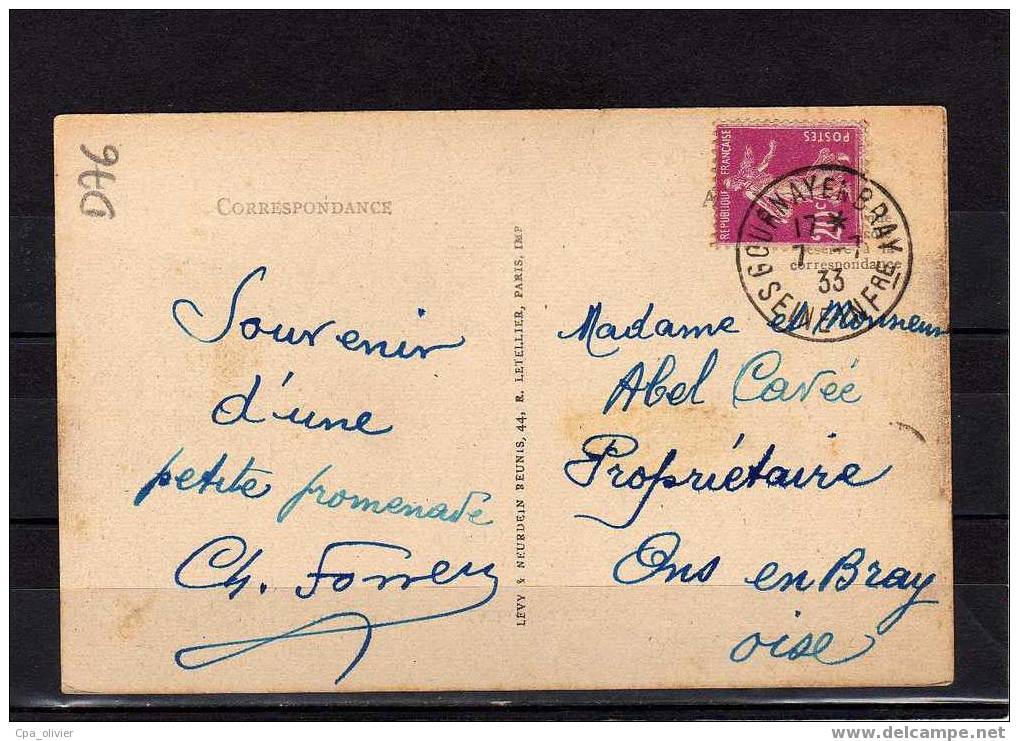 D76
CORRESPONDANCE
Souvenir
d'une
petite promenade
Ch.
LÉVY & NEURDEIN RÉUNIS, 44, R. LETELLIER, PARIS, IMP
REPUBLIQUE FRANÇAISE
POSTES
20 C
GOURNAY EN BRAY
17 *
7 - 7
33
SEINE INFRE
réservé à la
correspondance
Madame et Monsieur
Abel Cavéé
Propriétaire
Ons en Bray
oise
Cpa_olivier
www.delcampe.net